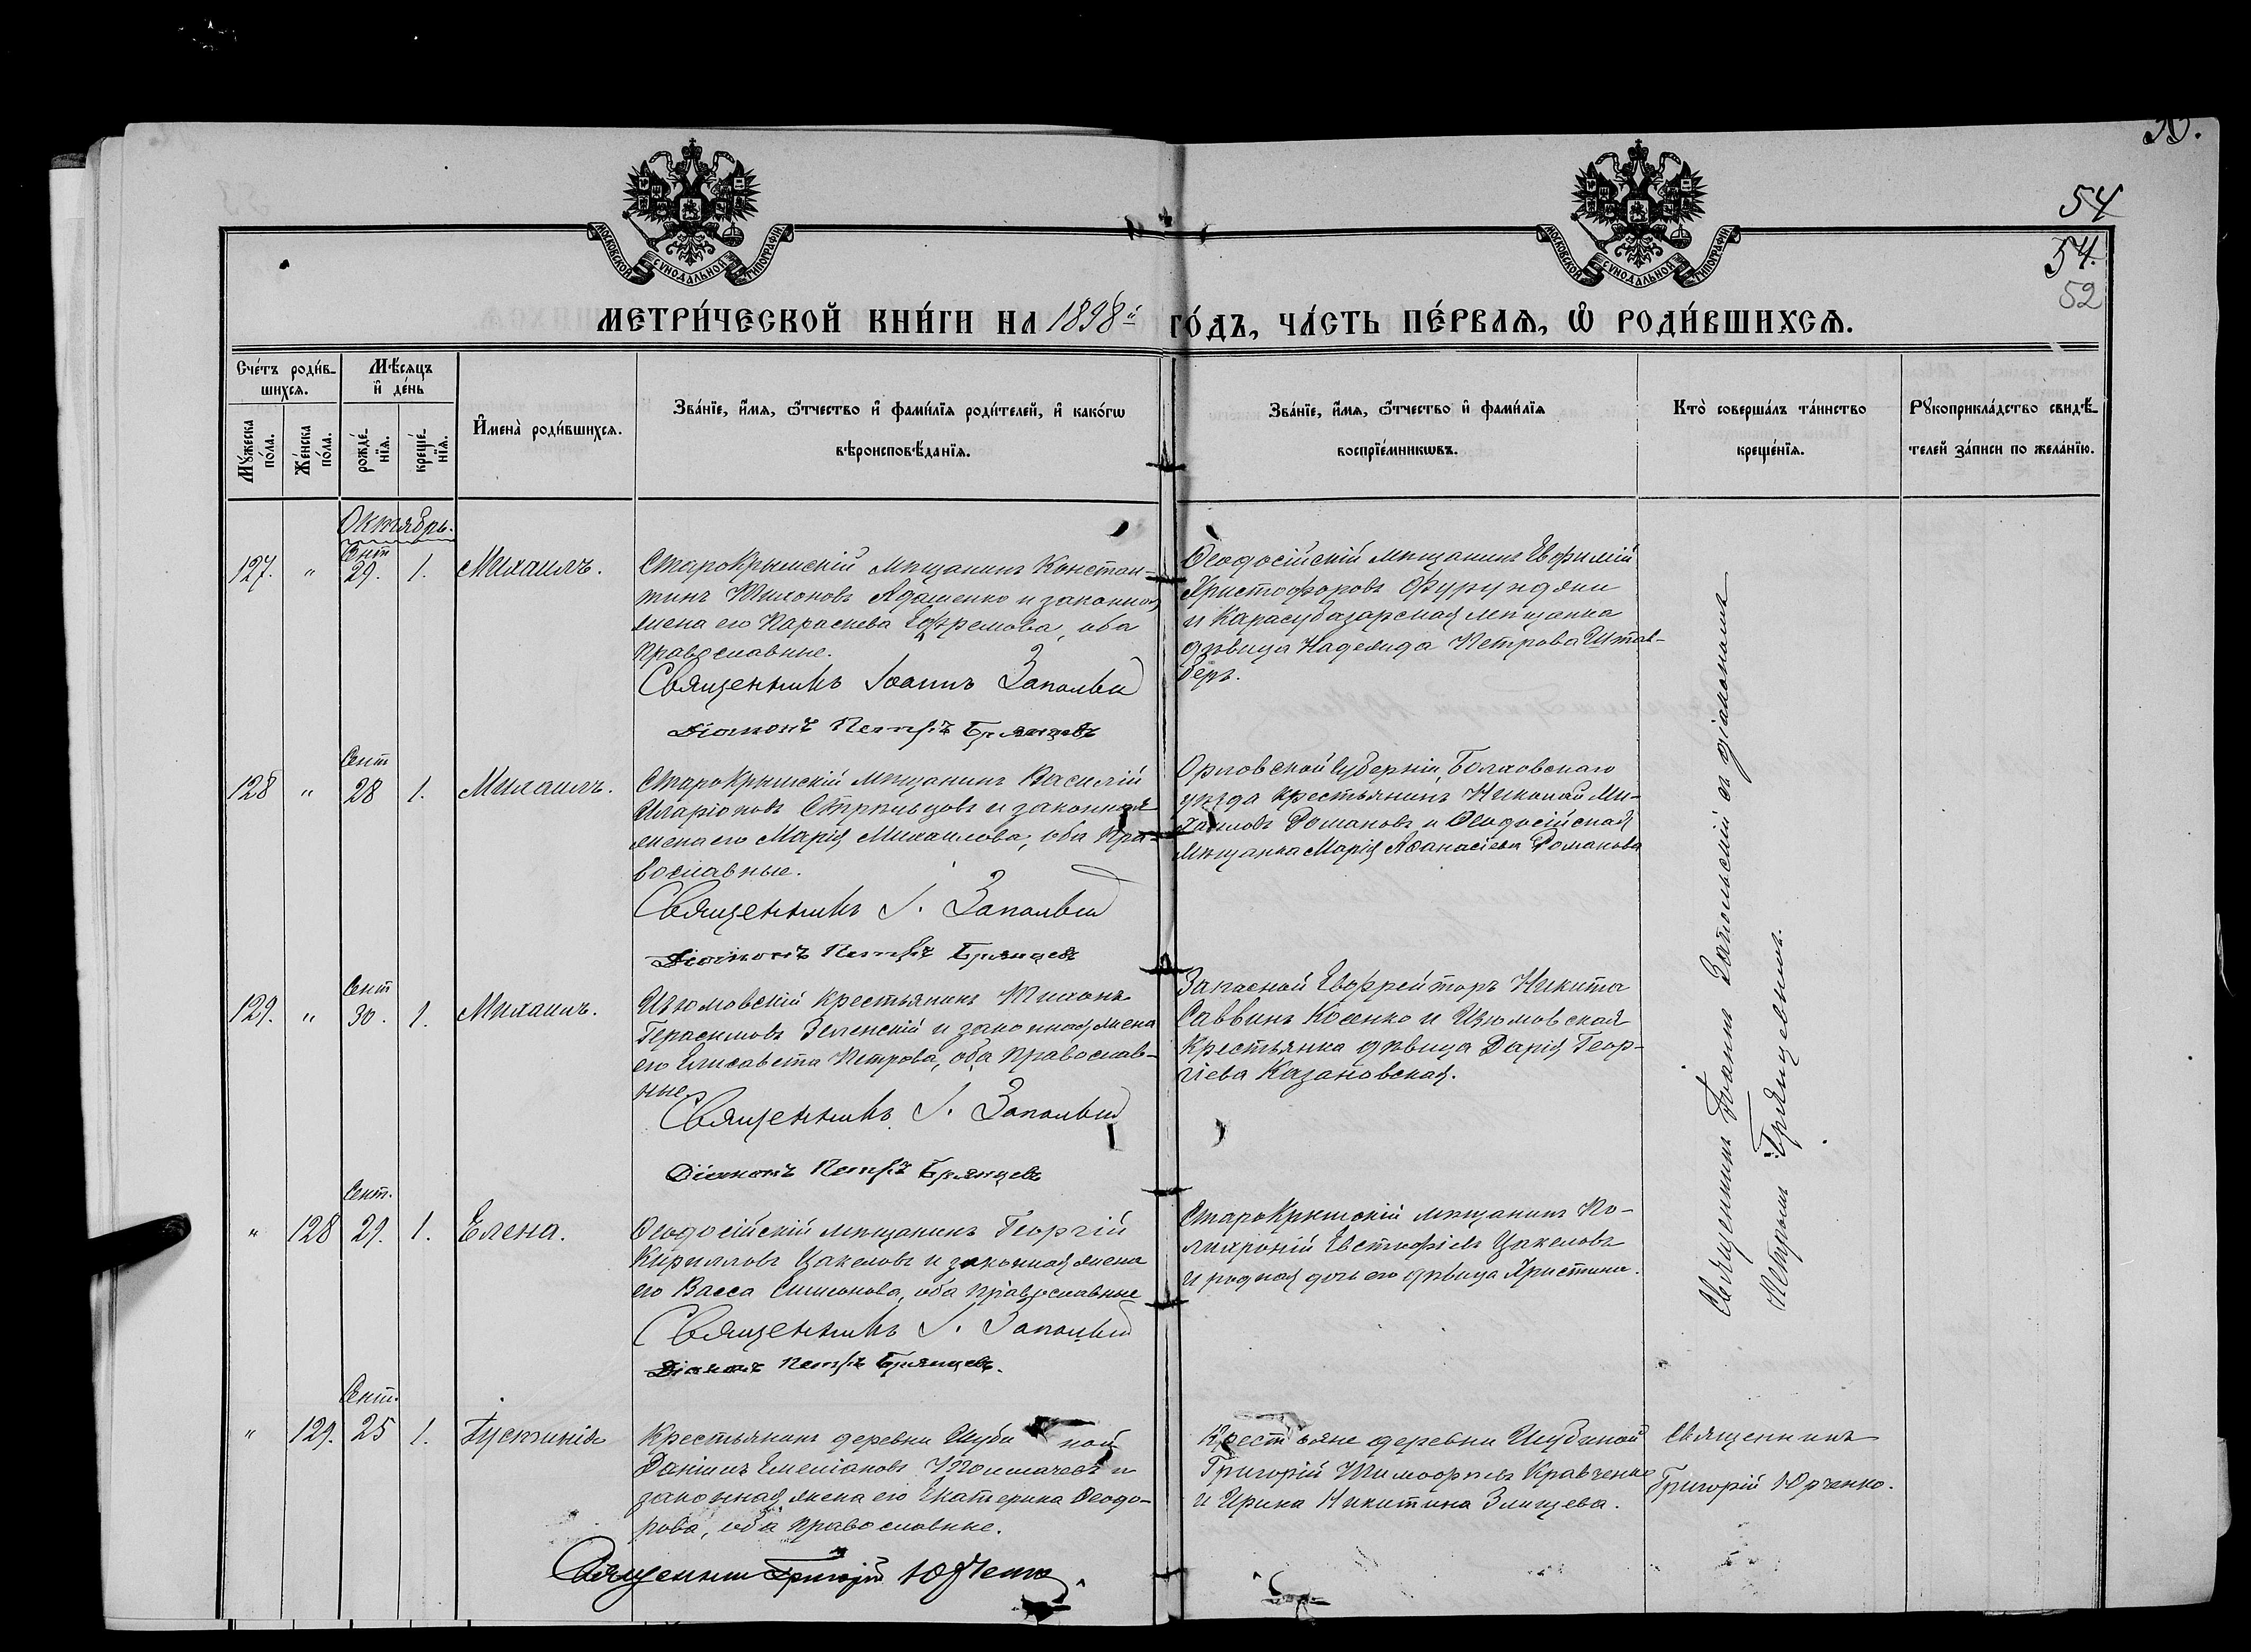 55.
54
54.
52
МОСКОВСКОЙ СѴНОДАЛЬНОЙ ТИПОГРАФІИ
МОСКОВСКОЙ СѴНОДАЛЬНОЙ ТИПОГРАФІИ
МЕТРИ́ЧЕСКОЙ КНИ́ГИ НА 1898й ГО́ДЪ, ЧА́СТЬ ПЕ́РВАѦ, Ѡ РОДИ́ВШИХСѦ.
Сче́тъ роди́в-
шихсѧ.
Мꙋ́жеска
по́ла.
Же́нска
по́ла.
Мѣ́сѧцъ
и҆ де́нь
рожде́-
нїѧ.
креще́-
нїѧ.
И҆мена̀ роди́вшихсѧ.
Зва́нїе, и҆́мѧ, ѻ҆́тчество и҆ фами́лїѧ роди́телей, и҆ како́гѡ
вѣроисповѣ́данїѧ.
Зва́нїе, и҆́мѧ, ѻ҆́тчество и҆ фами́лїѧ
воспрїе́мникѡвъ.
Кто̀ соверша́лъ та́инство
креще́нїѧ.
Рꙋкоприкла́дство свидѣ́-
телей за́писи по жела́нїю.
Октябрь.
127. " Сент 29. 1. Михаилъ.
Старокрымскій мѣщанинъ Констан-
тинъ Тихоновъ Адаменко и законная
жена его Параскева Ефремова, оба
православные.
Священникъ Іоаннъ Запольскій
Діаконъ Петръ Брянцевъ
Ѳеодосійскій мѣщанинъ Евфимій
Христофоровъ Фурунджи
и Карасубазарская мѣщанка
дѣвица Надежда Петрова Штал-
беръ.
128 " Сент 28 1. Михаилъ.
Старокрымскій мѣщанинъ Василій
Иларіоновъ Стрѣльцовъ и законная
жена его Марія Михаилова, оба пра-
вославные.
Священникъ І. Запольскій
Діаконъ Петръ Брянцевъ
Орловской губерніи, Болховскаго
уѣзда крестьянинъ Николай Ми-
хаиловъ Романовъ и Ѳеодосійская
мѣщанка Марія Аѳанасіева Романова
129. " Сент 30. 1. Михаилъ.
Изюмовскій крестьянинъ Тихонъ
Герасимовъ Зеленскій и законная жена
его Елисавета Петрова, оба православ-
ные.
Священникъ І. Запольскій
Діаконъ Петръ Брянцевъ
Запасной Ефрейторъ Никита
Саввинъ Косенко и Изюмовская
крестьянка дѣвица Дарія Геор-
гіева Казановская.
" 128 Сент. 29. 1. Елена.
Ѳеодосійскій мѣщанинъ Георгій
Кирилловъ Цакеловъ и законная жена
его Васса Симонова, оба православные
Священникъ І. Запольскій
Діаконъ Петръ Брянцевъ.
Старокрымскій мѣщанинъ По-
лихроній Евстафіевъ Цакеловъ
и родная дочь его дѣвица Христина.
Священникъ Іоаннъ Запольскій съ діакономъ
Петромъ Брянцевымъ.
" 129. Сент. 25 1. Іустинія
Крестьянинъ деревни Шубиной
Даніилъ Емеліановъ Толмачевъ и
законная жена его Екатерина Ѳеодо-
рова, оба православные.
Священникъ Григорій Юрченко
Крестьяне деревни Шубиной
Григорій Тимоѳеевъ Кравченко
и Ирина Никитина
Священникъ
Григорій Юрченко.